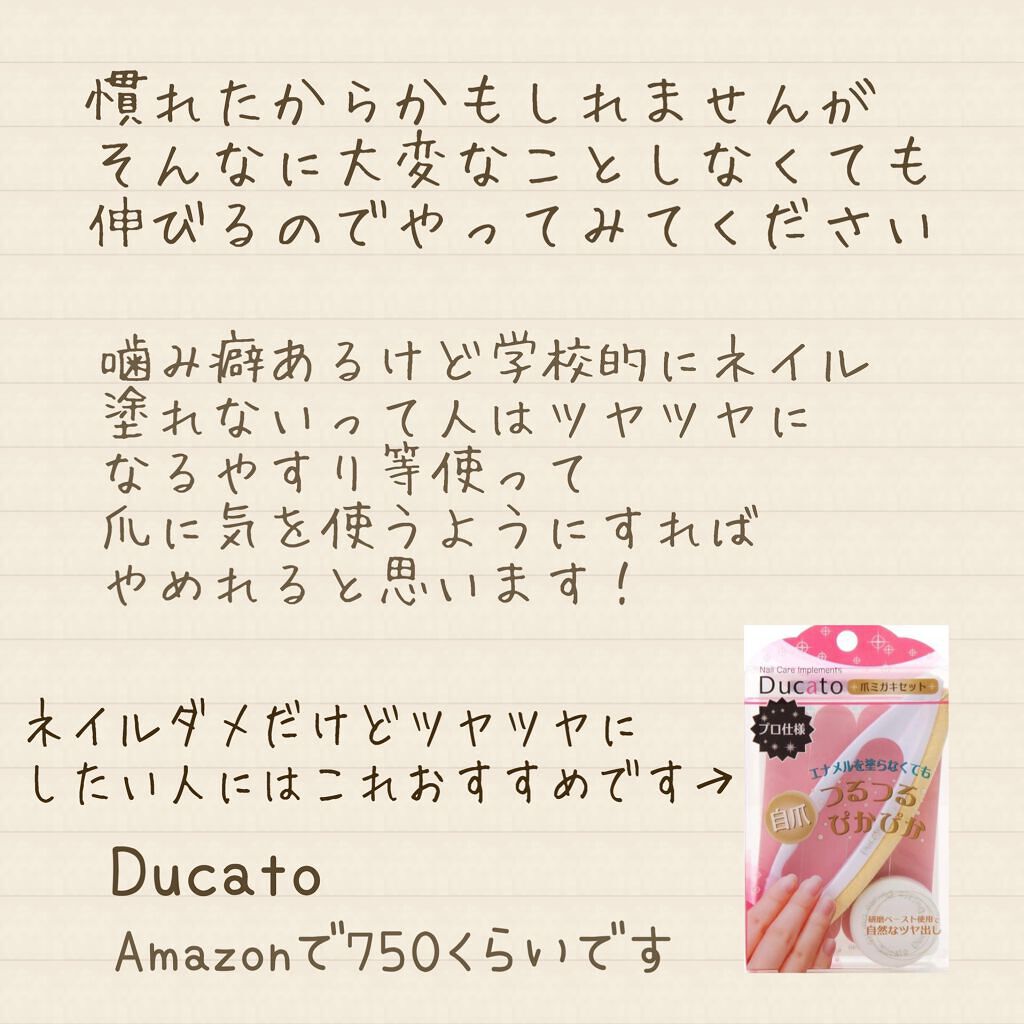 慣れたからかもしれませんが
そんなに大変なことしなくても
伸びるのでやってみてください
噛み癖あるけど学校的にネイル
塗れないって人はツヤツヤに
なるやすり等使って
爪に気を使うようにすれば
やめれると思います!
ネイルダメだけどツヤツヤに
したい人にはこれおすすめです→
Ducato
Amazonで750くらいです
Nail Care Implements
Ducato 爪ミガキセット
プロ仕様
エナメルを塗らなくても
自爪
つるつる
ぴかぴか
研磨ペースト使用で
自然なツヤ出し